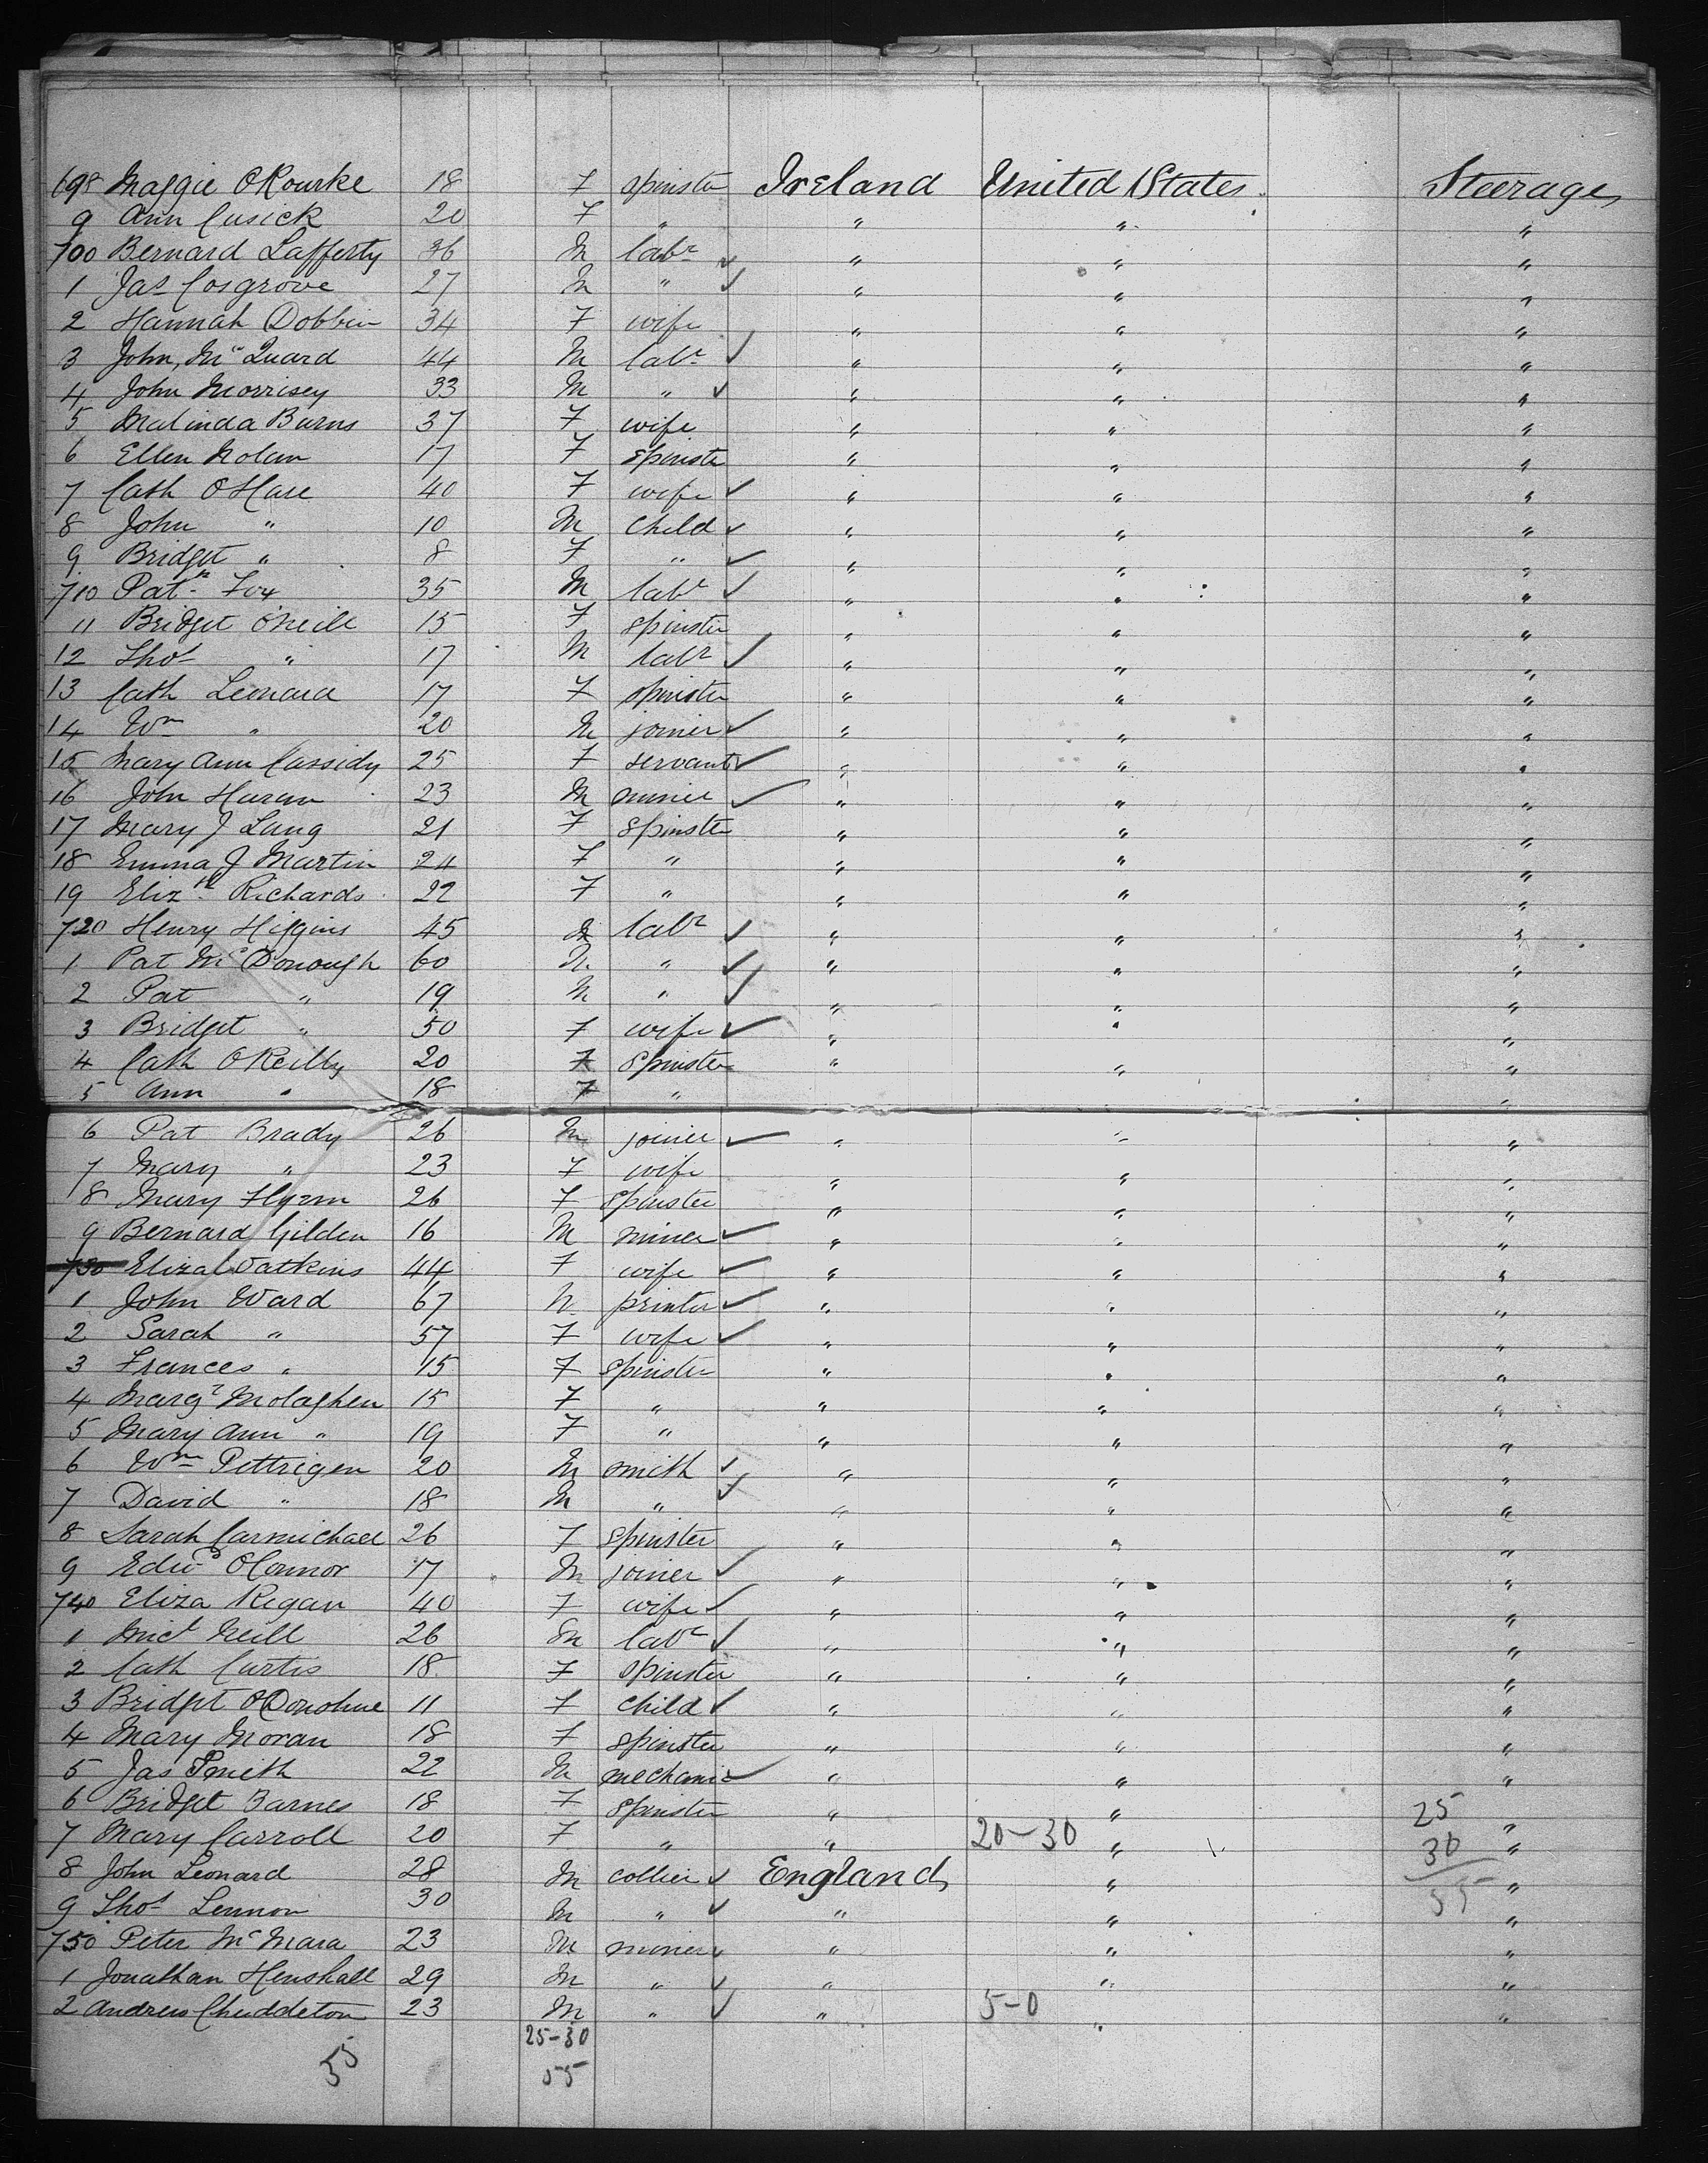 698 Maggie O'Rourke 18 F spinster Ireland United States Steerage
9 Ann Cusick 20 F " " " "
700 Bernard Lafferty 36 M labr " " "
1 Jas Cosgrove 27 M " " " "
2 Hannah Dobbin 34 F wife " " "
3 John McQuard 44 M labr " " "
4 John Morrisey 33 M " " " "
5 Malinda Burns 37 F wife " " "
6 Ellen Nolan 17 F spinster " " "
7 Cath O'Hare 40 F wife " " "
8 John " 10 M child " " "
9 Bridget " 8 F " " " "
710 Patk Fox 35 M labr " " "
11 Bridget O'Neill 15 F spinster " " "
12 Thos " 17 M labr " " "
13 Cath Leonard 17 F spinster " " "
14 Wm " 20 M joiner " " "
15 Mary Ann Cassidy 25 F servant " " "
16 John Haran 23 M miner " " "
17 Mary J Lang 21 F spinster " " "
18 Emma J Martin 24 F " " " "
19 Elizth Richards 22 F " " " "
720 Henry Higgins 45 M labr " " "
1 Pat McDonough 60 M " " " "
2 Pat " 19 M " " " "
3 Bridget " 50 F wife " " "
4 Cath O'Reilly 20 F spinster " " "
5 Ann " 18 F " " "
6 Pat Brady 26 M joiner " " "
7 Mary " 23 F wife " " "
8 Mary Flynn 26 F spinster " " "
9 Bernard Gilden 16 M miner " " "
730 Eliza Watkins 44 F wife " " "
1 John Ward 67 M printer " " "
2 Sarah " 57 F wife " " "
3 Frances " 15 F spinster " " "
4 Margt Molaghen 15 F " " " "
5 Mary Ann " 19 F " " " "
6 Wm Pettrigen 20 M smith " " "
7 David " 18 M " " " "
8 Sarah Carmichael 26 F spinster " " "
9 Edwd O'Connor 17 M joiner " " "
740 Eliza Regan 40 F wife " " "
1 Micl Neill 26 M labr " " "
2 Cath Curtis 18 F spinster " " "
3 Bridget O'Donohue 11 F child " " "
4 Mary Moran 18 F spinster " " "
5 Jas Smith 22 M mechanic " " "
6 Bridget Barnes 18 F spinster " " 25 "
7 Mary Carroll 20 F " " 20-30 " 30 "
8 John Leonard 28 M collier England " 55 "
9 Thos Lennon 30 M " " " "
750 Peter McMara 23 M miner " " "
1 Jonathan Henshall 29 M " " " "
2 Andrew Chuddleton 23 M " " 5-0 " "
25-30
55 55